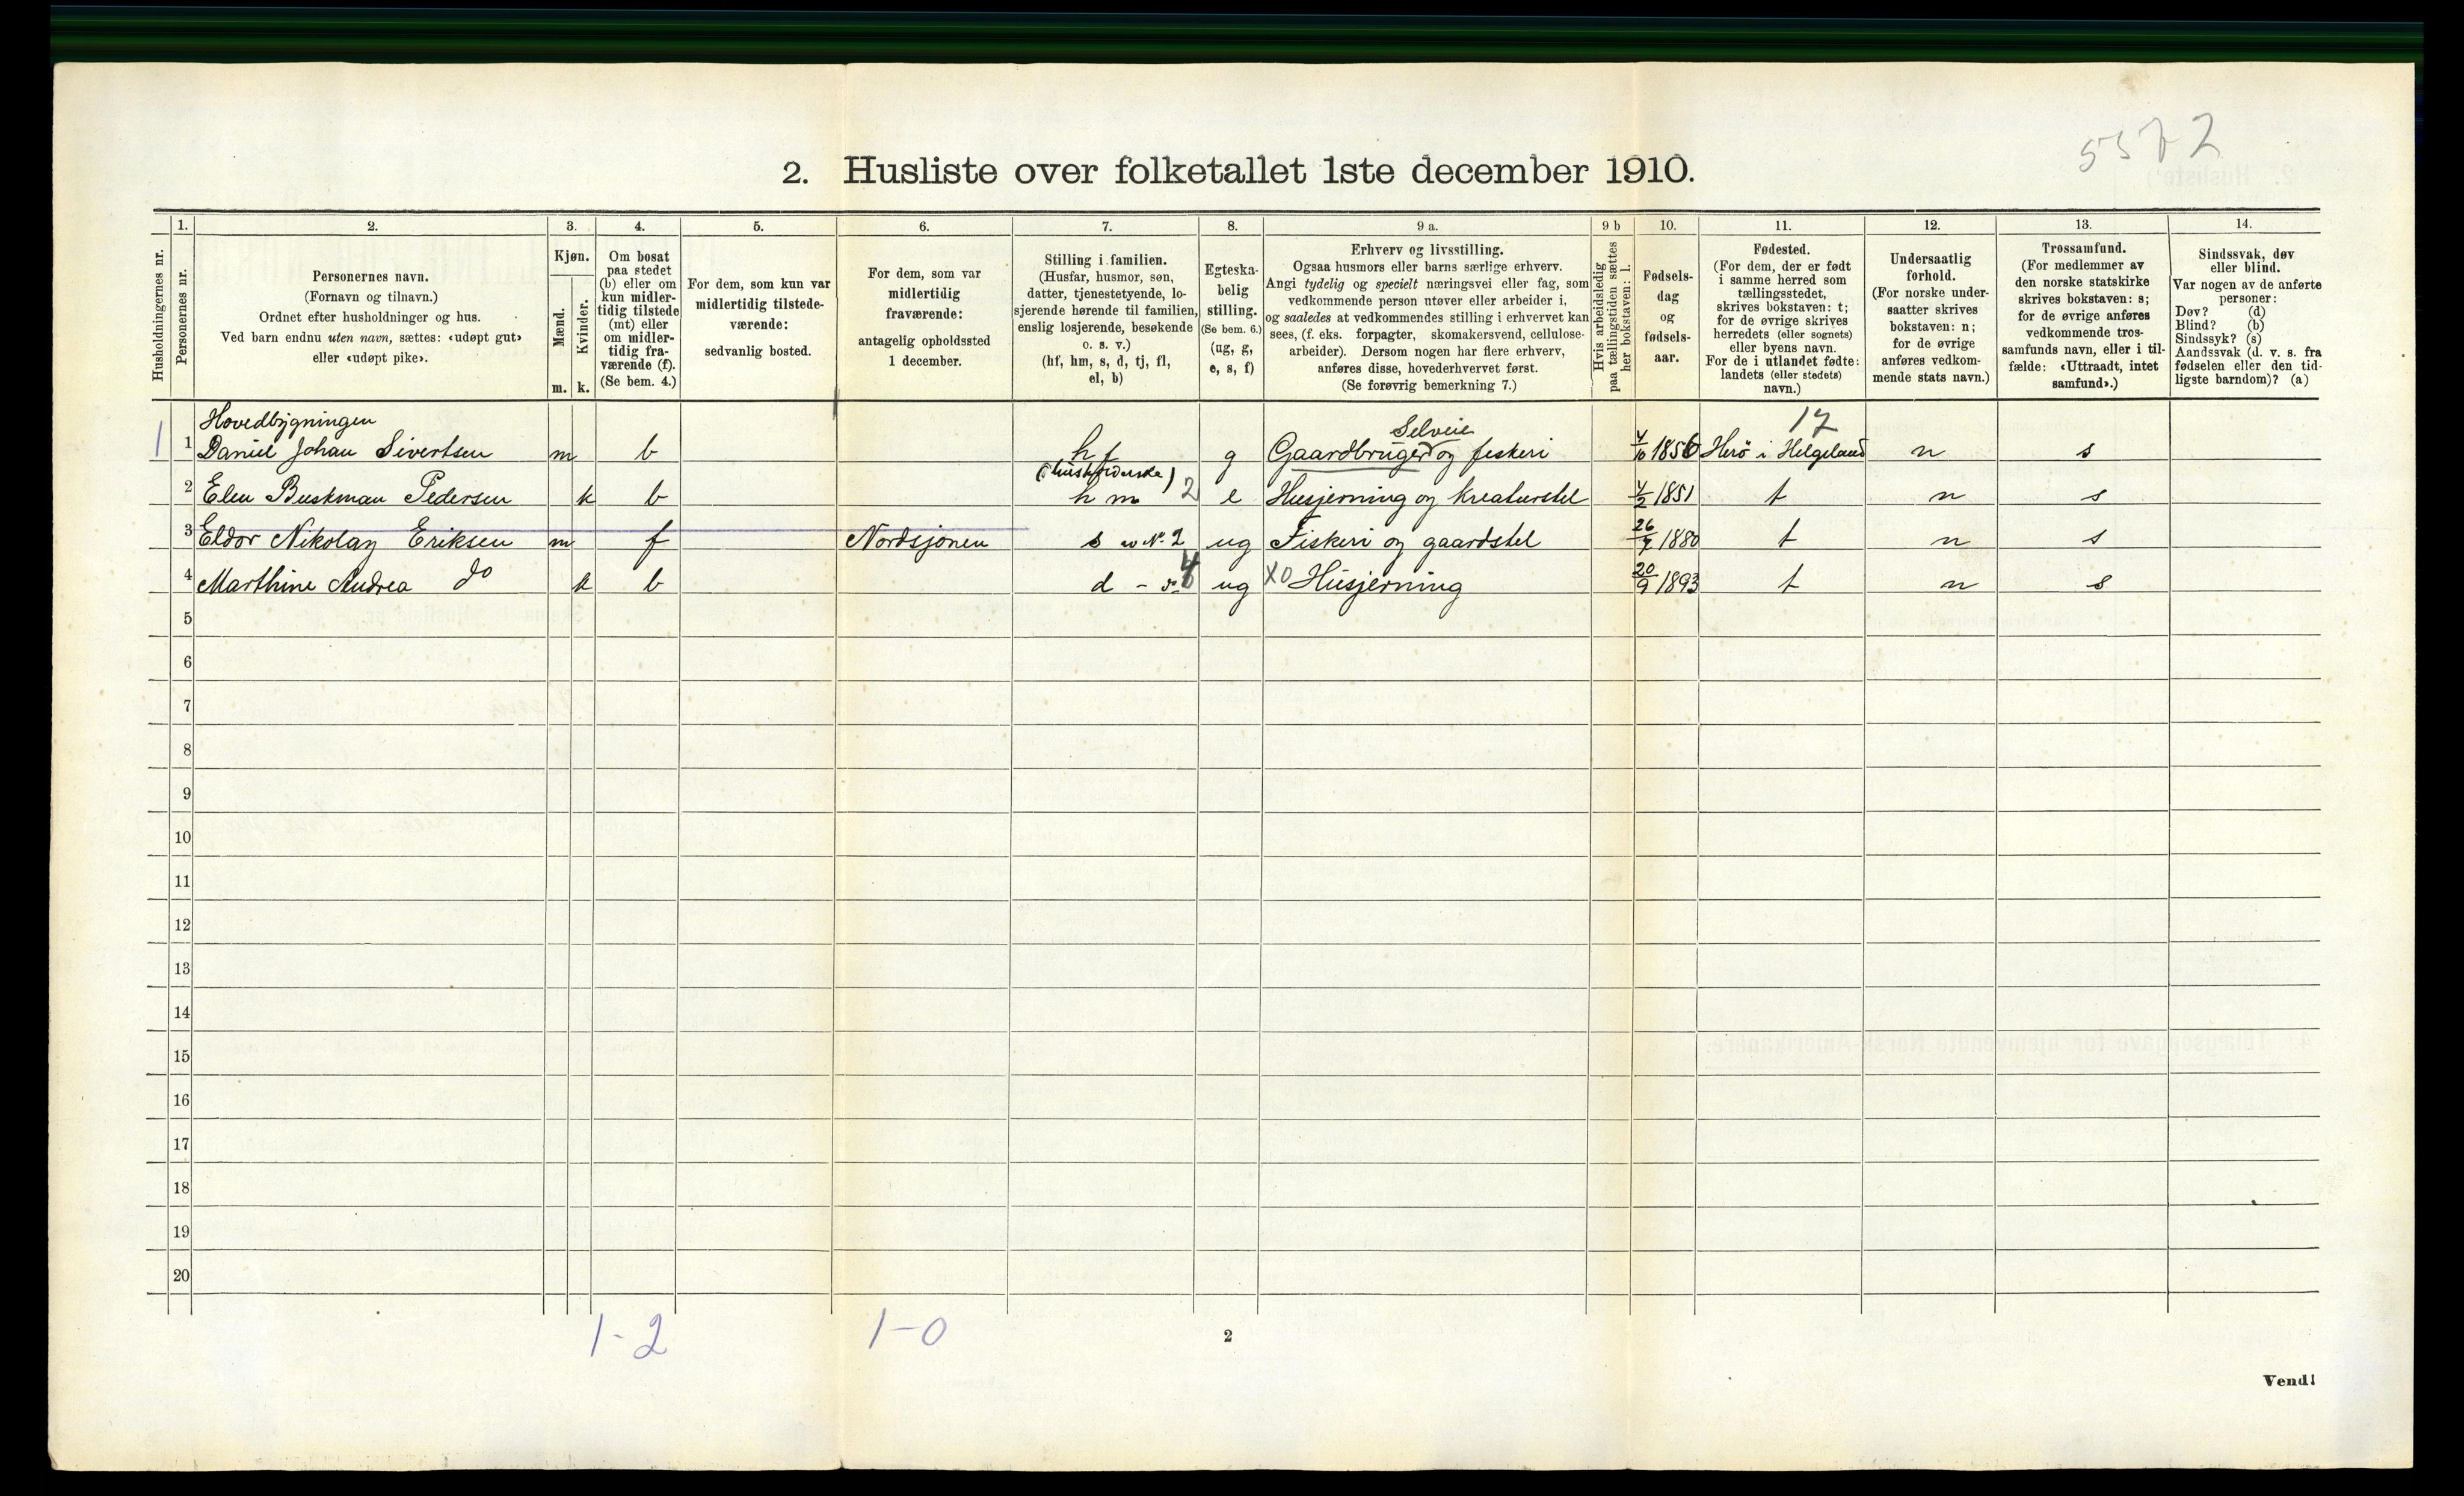 5572
2. Husliste over folketallet 1ste december 1910.
Husholdningernes nr.
1.
Personernes nr.
2.
Personernes navn.
(Fornavn og tilnavn.)
Ordnet efter husholdninger og hus.
Ved barn endnu uten navn, sættes: «udøpt gut»
eller «udøpt pike».
3.
Kjøn.
Mænd.
Kvinder.
m. k.
4.
Om bosat
paa stedet
(b) eller om
kun midler-
tidig tilstede
(mt) eller
om midler-
tidig fra-
værende (f).
(Se bem. 4.)
5.
For dem, som kun var
midlertidig tilstede-
værende:
sedvanlig bosted.
6.
For dem, som var
midlertidig
fraværende:
antagelig opholdssted
1 december.
7.
Stilling i familien.
(Husfar, husmor, søn,
datter, tjenestetyende, lo-
sjerende hørende til familien,
enslig losjerende, besøkende
o. s. v.)
(hf, hm, s, d, tj, fl,
el, b)
8.
Egteska-
belig
stilling.
(Se bem. 6.)
(ug, g,
e, s, f)
9 a.
Erhverv og livsstilling.
Ogsaa husmors eller barns særlige erhverv.
Angi tydelig og specielt næringsvei eller fag, som
vedkommende person utøver eller arbeider i,
og saaledes at vedkommendes stilling i erhvervet kan
sees, (f. eks. forpagter, skomakersvend, cellulose-
arbeider). Dersom nogen har flere erhverv,
anføres disse, hovederhvervet først.
(Se forøvrig bemerkning 7.)
9 b
Hvis arbeidsledig
paa tællingstiden sættes
her bokstaven: l.
10.
Fødsels-
dag
og
fødsels-
aar.
11.
Fødested.
(For dem, der er født
i samme herred som
tællingsstedet,
skrives bokstaven: t;
for de øvrige skrives
herredets (eller sognets)
eller byens navn.
For de i utlandet fødte:
landets (eller stedets)
navn.)
12.
Undersaatlig
forhold.
(For norske under-
saatter skrives
bokstaven: n;
for de øvrige
anføres vedkom-
mende stats navn.)
13.
Trossamfund.
(For medlemmer av
den norske statskirke
skrives bokstaven: s;
for de øvrige anføres
vedkommende tros-
samfunds navn, eller i til-
fælde: «Uttraadt, intet
samfund».)
14.
Sindssvak, døv
eller blind.
Var nogen av de anførte
personer:
Døv? (d)
Blind? (b)
Sindssyk? (s)
Aandssvak (d. v. s. fra
fødselen eller den tid-
ligste barndom)? (a)
Hovedbygningen
Selveie
17
1 1 Daniel Johan Sivertsen m b hf g Gaardbruger og fiskeri 4/10 1856 Herö i Helgeland n s
(husholderske)
2 Elen Buskman Pedersen k b hm 2 e Husjerning og kreaturstel 4/2 1851 t n s
3 Eldor Nikolay Eriksen m f Nordsjönen s av No 2 ug Fiskeri og gaardstel 26/7 1880 t n s
4 Marthine Andrea do k b d - do 4 ug XO Husjerning 20/9 1893 t n s
5
6
7
8
9
10
11
12
13
14
15
16
17
18
19
20
1-2 1-0
2
Vend!